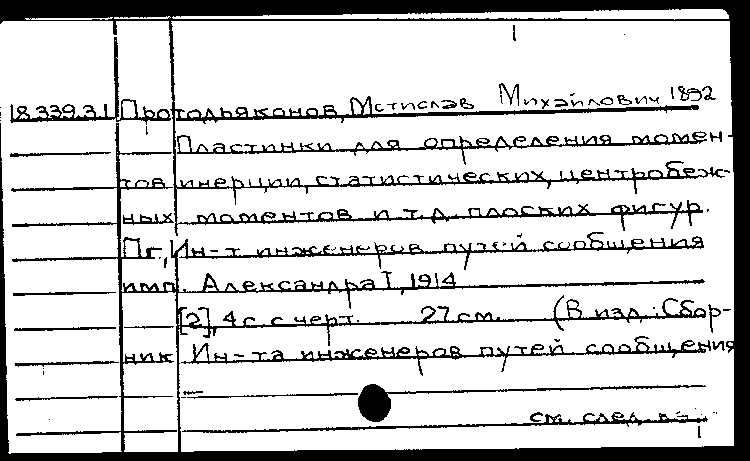 18.339.31 Протодьяконов, Мстислав Михайлович, 1892
Пластинки для определения момен-
тов инерции, статистических, центробеж-
ных моментов и т.д. плоских фигур.
Пг., Ин-т инженеров путей сообщения
имп. Александра I, 1914
[2], 4 с. с черт. 27 см. (В изд.: Сбор-
ник Ин-та инженеров путей сообщения
см. след. к-